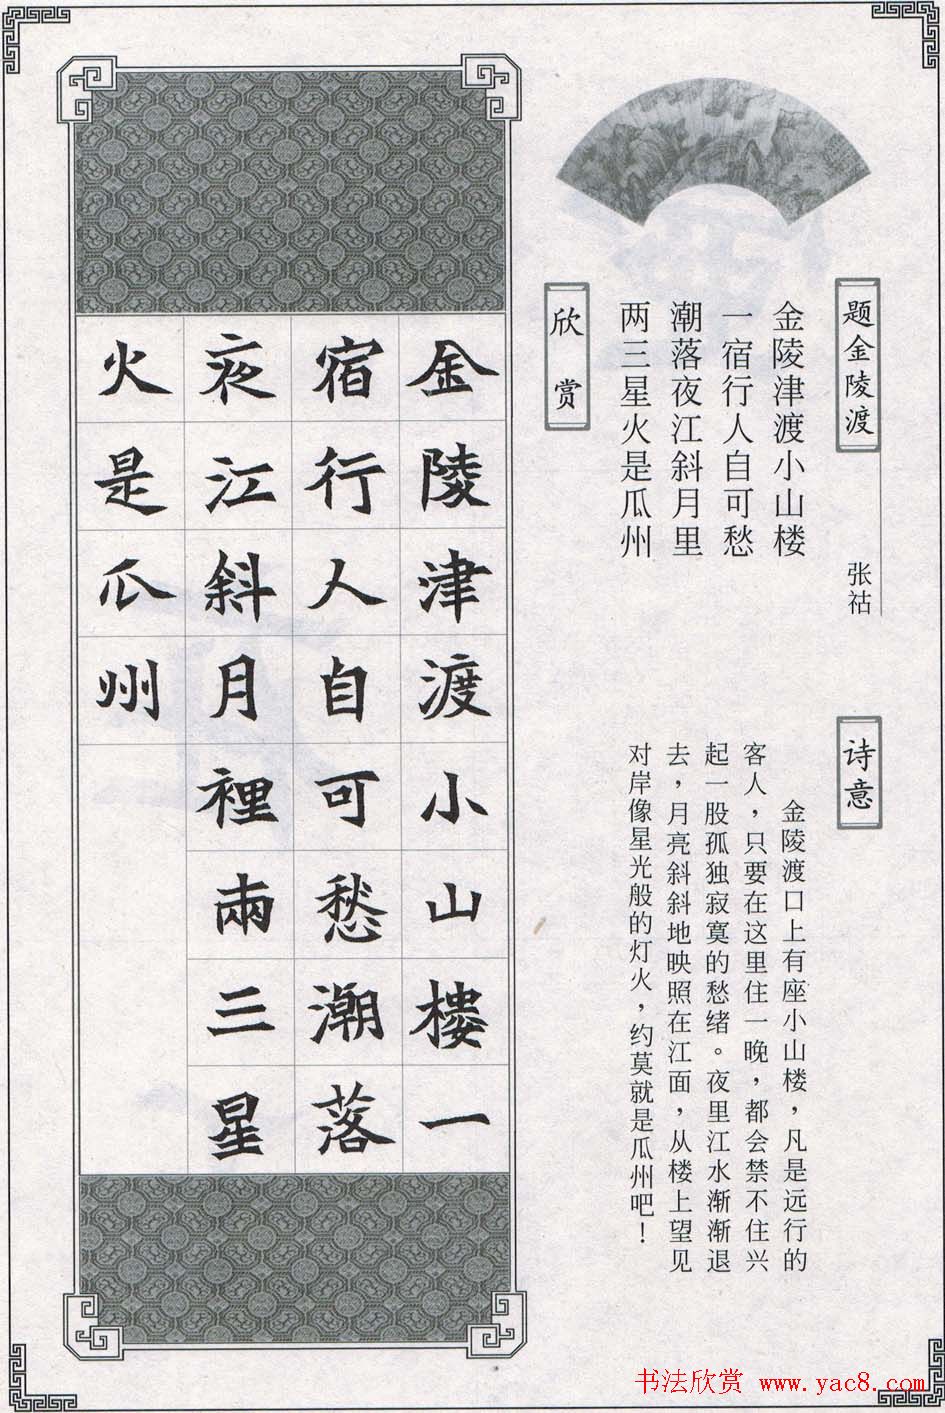 题金陵渡
张祜
金陵津渡小山楼
一宿行人自可愁
潮落夜江斜月里
两三星火是瓜州
诗意
金陵渡口上有座小山楼，凡是远行的
客人，只要在这里住一晚，都会禁不住兴
起一股孤独寂寞的愁绪。夜里江水渐渐退
去，月亮斜斜地映照在江面，从楼上望见
对岸像星光般的灯火，约莫就是瓜州吧！
欣赏
金陵津渡小山楼一
宿行人自可愁潮落
夜江斜月裡兩三星
火是瓜州
书法欣赏 www.yac8.com